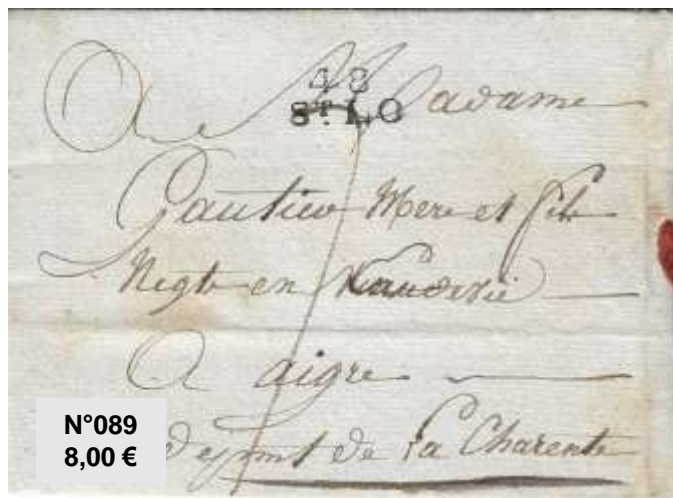 48
ST LO
A Madame
Gautier Mere et fils
Negts en
A aigre
de la Charente
N°089
8,00 €